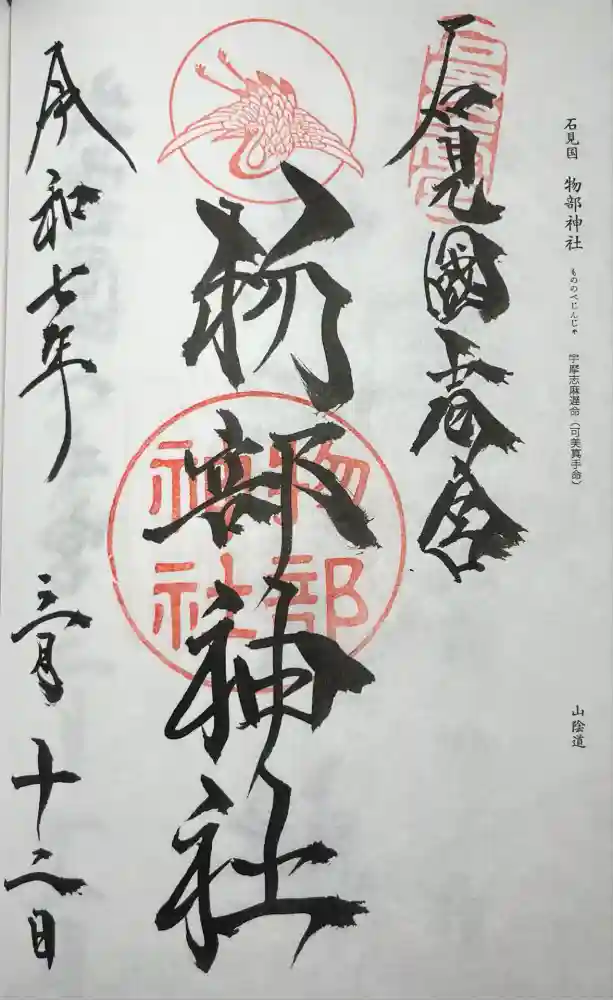 石見国 物部神社 もののべじんじゃ 宇摩志麻遅命(可美真手命) 山陰道
石見國一宮
石見國一之宮
物部神社
物部
神社
令和七年 三月 十二日